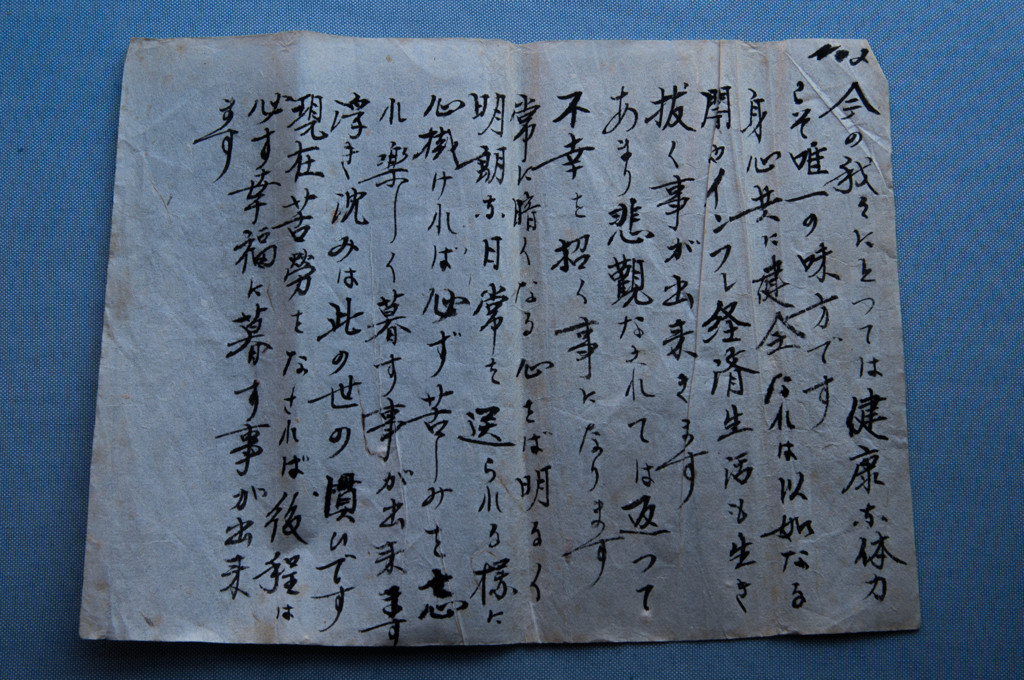 No2
今の我々にとつては健康な体力
こそ唯一の味方です
身心共に健全なれは以如なる
闇やインフレ経済生活も生き
抜く事が出来きます
あまり悲觀なされては返つて
不幸を招く事になります
常に暗くなる心をば明るく
明朗な日常を送られる様に
心掛ければ必ず苦しみを忘
れ楽しく暮す事が出来ます
浮き沈みは此の世の慣ひです
現在苦勞をなされば後程は
必す幸福に暮す事が出来
ます